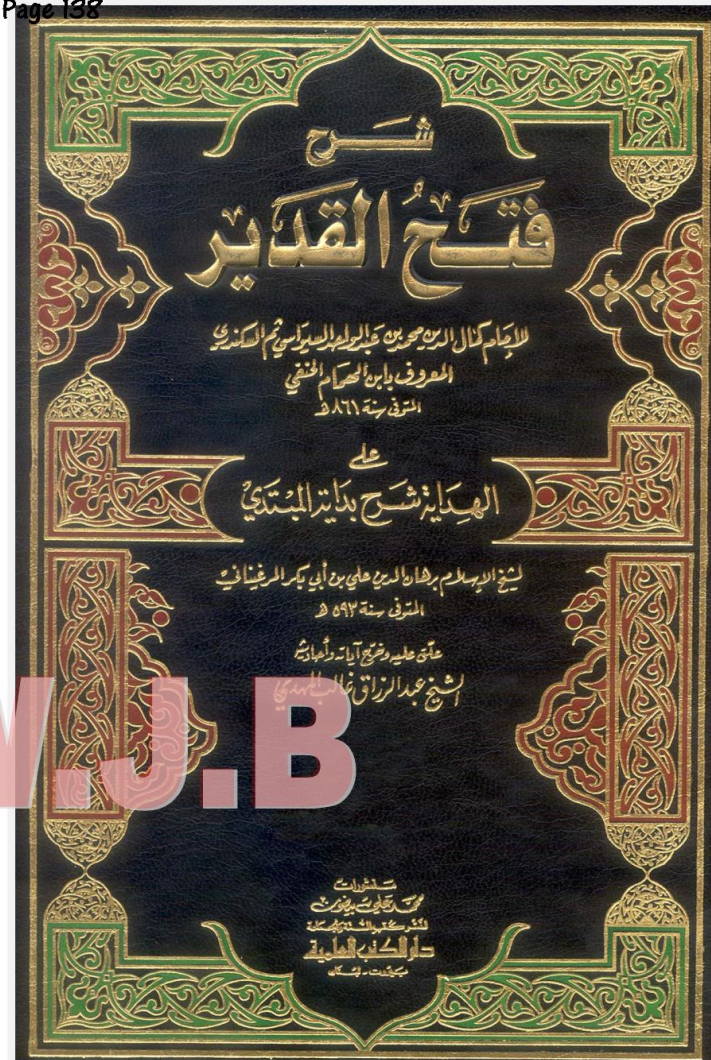 Page 138
شرح
فَتَحُ القَدَير
للإمام كمال الدين محمد بن عبد الواحد السيواسي ثم السكندري
المعروف بابن الهمام الحنفي
المتوفى سنة ٨٦١ هـ
على
الهداية شرح بداية المبتدي
لشيخ الإسلام برهان الدين علي بن أبي بكر المرغيناني
المتوفى سنة ٥٩٣ هـ
علق عليه وخرج آياته وأحاديثه
الشيخ عبد الرزاق غالب المهدي
W.J.B
منشورات
محمد علي بيضون
لنشر كتب السنة والجماعة
دار الكتب العلمية
بيروت - لبنان